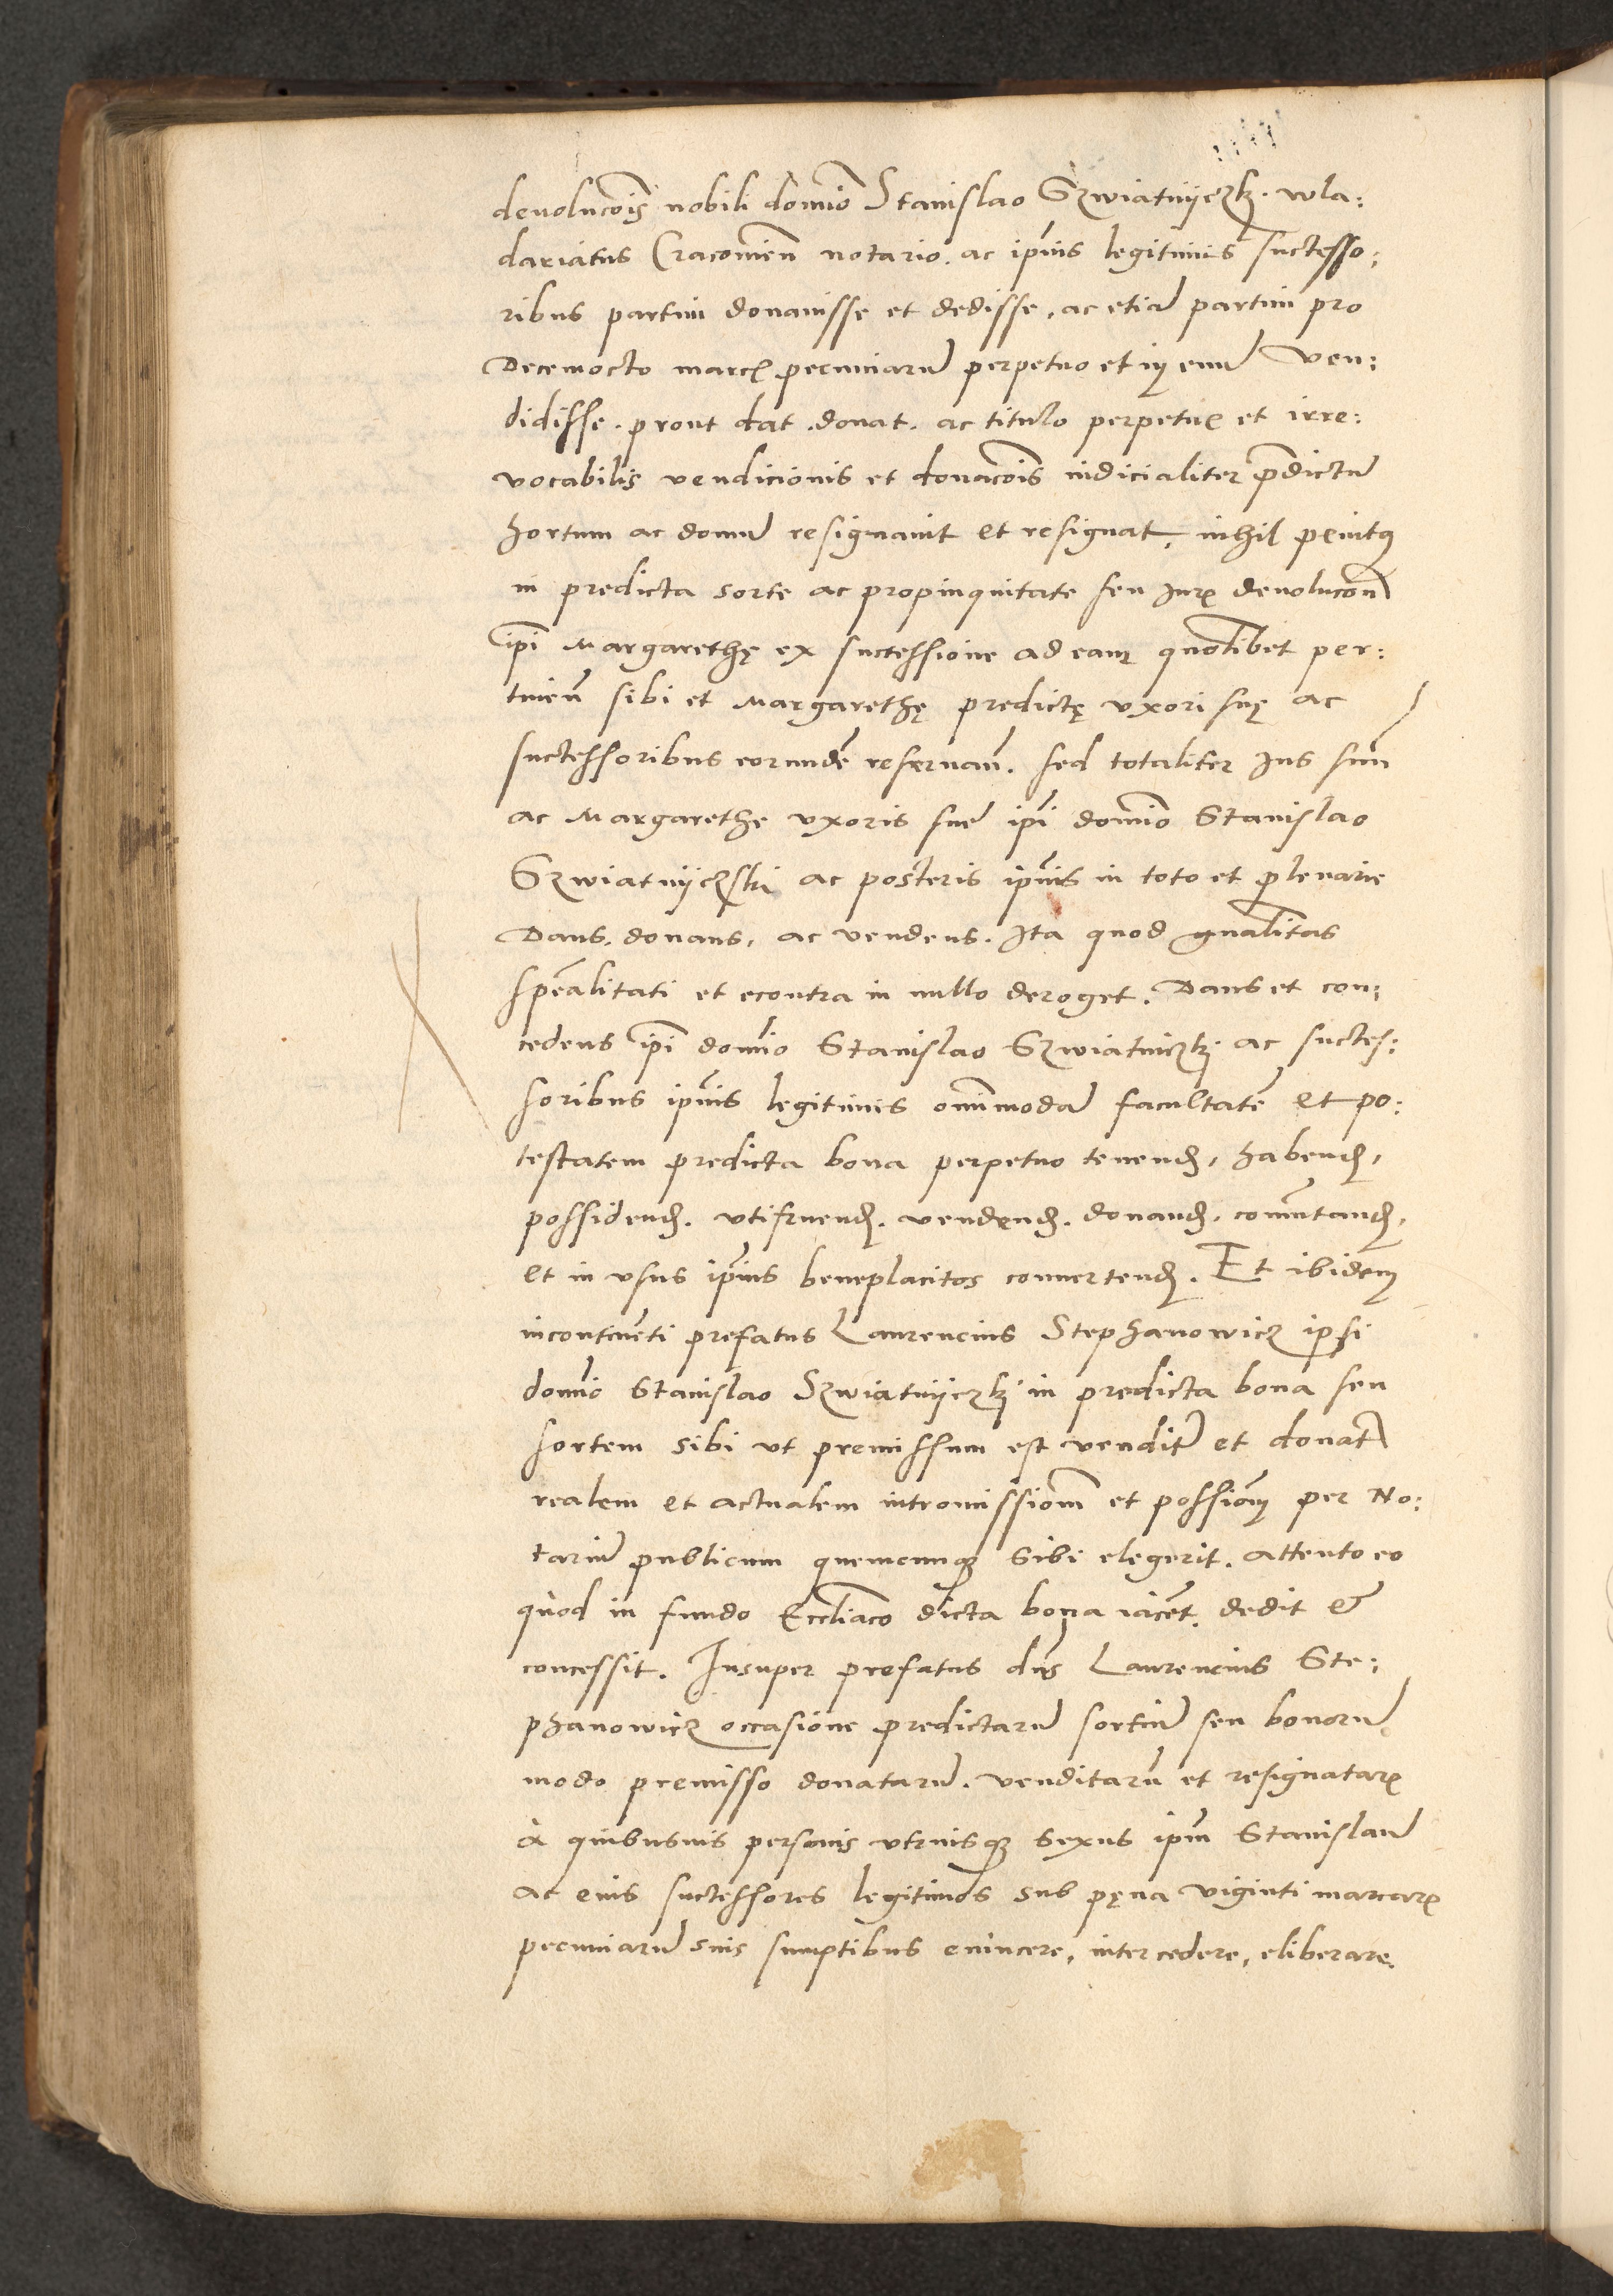 deuolucois nobili domio Stanislao Szwiatnÿczkj. wla:
dariatus Cracouien notario. ac ipius legitimis successo:
ribus partim donauisse et dedisse, ac etia partim pro
Decemocto marcꝭ pecuniaru perpetuo et in euu ven:
didisse. prout dat. donat. ac titulo perpetue et irre:
vocabilis vendicionis et donacois iudicialiter pdictu
hortum ac domu resignauit et resignat, nihil penitꝰ
in predicta sorte ac propinquitate seu Jurꝭ deuolucon
ipi Margarethę ex successione ad eam quolibet per:
tinen sibi et Margarethę predictę vxori suę ac
successoribus eorunde reseruan. sed totaliter Jus suu
ac Margarethe vxoris sue ipi domio Stanislao
Szwiatnÿczski ac posteris ipius in toto et plenarie
Dans, donans, ac vendens. Ita quod gnalitas
spealitati et econtra in nullo deroget. Dans et con:
cedens ipi domio Stanislao Szwiatniczkj ac succes:
soribus ipius legitimis omimoda facultate et po:
testatem predicta bona perpetuo tenendj, habendj,
possidendj. vtifruendj. vendendj. donandj. comutandj,
et in vsus ipius beneplacitos conuertendj. Et ibidem
incontineti prefatus Laurencius Stephanowicz ipsi
domio Stanislao Szwiatnÿczkj in predicta bona seu
sortem sibi vt premissum est vendit et donat
realem et actualem intromissionm et possionm per No:
tariu publicum quemcunqꝫ sibi elegerit. attento eo
quod in fundo Eccliaco dicta bona iacet. dedit &
concessit. Insuper prefatus dns Laurencius Ste:
phanowicz occasione predictaru sortiu seu bonoru
modo premisso donataru. venditaru et resignatarꝭ
à quibusuis personis vtriusqꝫ sexus ipm Stanislau
ac eius successores legitimos sub pęna viginti marcarꝭ
pecuniaru suis sumptibus euincere, intercedere, eliberare.